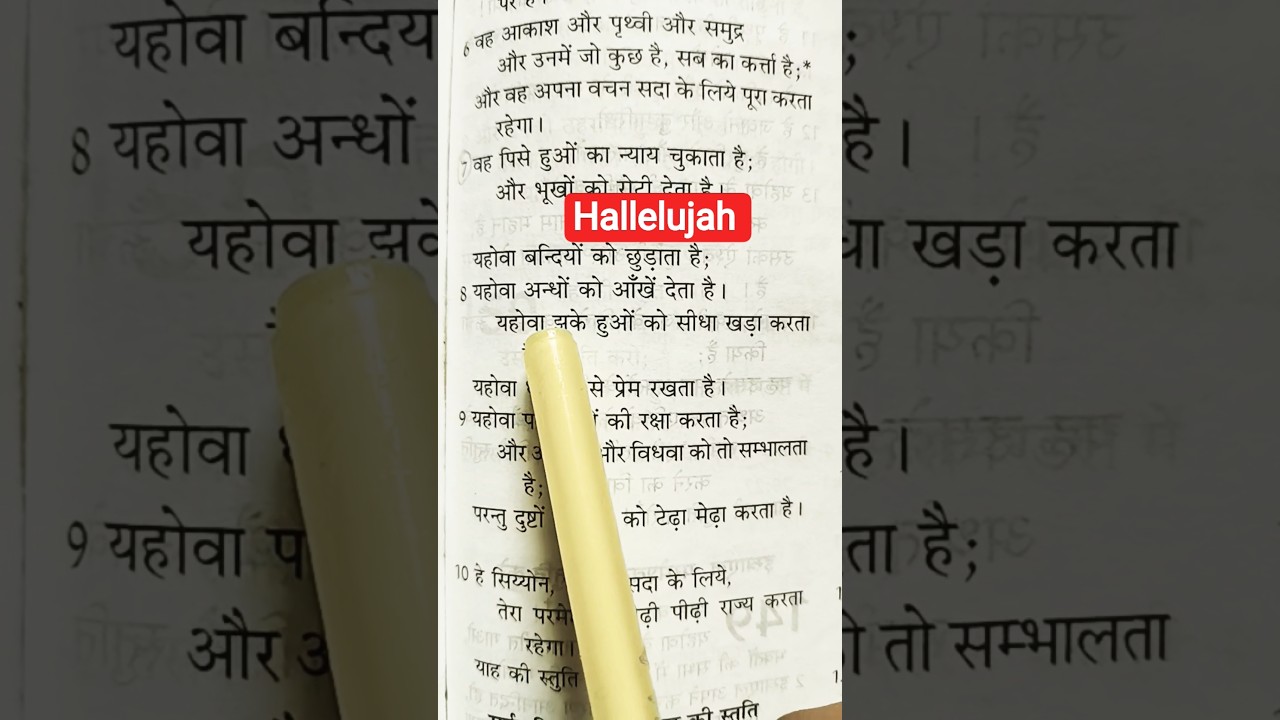 6 वह आकाश और पृथ्वी और समुद्र
और उनमें जो कुछ है, सब का कर्त्ता है;*
और वह अपना वचन सदा के लिये पूरा करता
रहेगा।
7 वह पिसे हुओं का न्याय चुकाता है;
और भूखों को रोटी देता है।
Hallelujah
यहोवा बन्दियों को छुड़ाता है;
8 यहोवा अन्धों को आँखें देता है।
यहोवा झुके हुओं को सीधा खड़ा करता
यहोवा से प्रेम रखता है।
9 यहोवा की रक्षा करता है;
और और विधवा को तो सम्भालता
है;
परन्तु दुष्टों को टेढ़ा मेढ़ा करता है।
10 हे सिय्योन, सदा के लिये,
तेरा पीढ़ी राज्य करता
रहेगा।
याह की स्तुति
की स्तुति